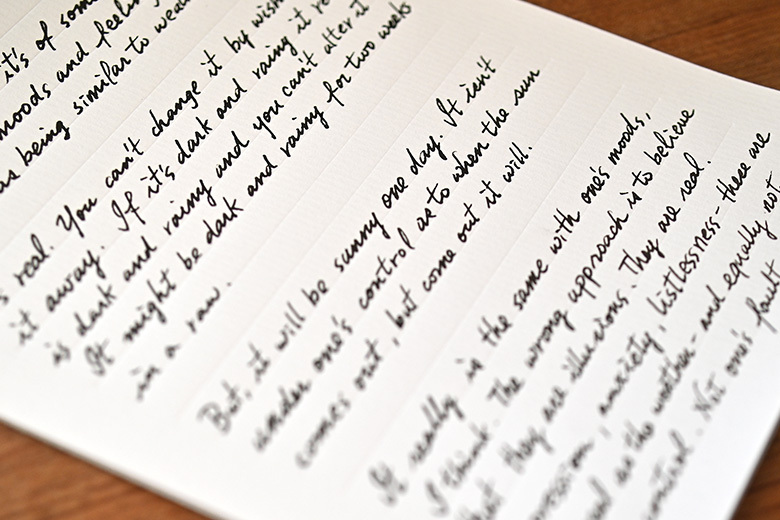 it's of some
moods and feelin
as being similar to wea
s real. You can't change it by wish
it away. If it's dark and rainy it re
is dark and rainy and you can't alter it
It might be dark and rainy for two weeks
in a row.
But, it will be sunny one day. It isn't
under one's control as to when the sun
comes out, but come out it will.
It really is the same with one's moods,
I think. The wrong approach is to believe
that they are illusions. They are real.
ression, anxiety, listlessness - these are
real as the weather - and equally not
control. Not one's fault